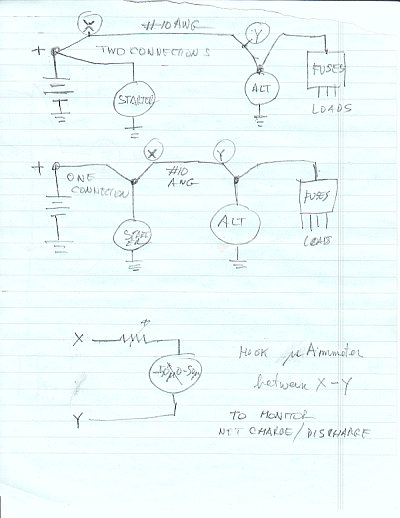 X
#10 AWG
Y
+
TWO CONNECTIONS
FUSES
STARTER
ALT
LOADS
X
Y
+
#10
AWG
ONE
CONNECTION
FUSES
START
ER
ALT
LOADS
X
+
-50µ 0-50µ
Y
HOOK µAmmeter
between X-Y
TO MONITOR
NET CHARGE/DISCHARGE